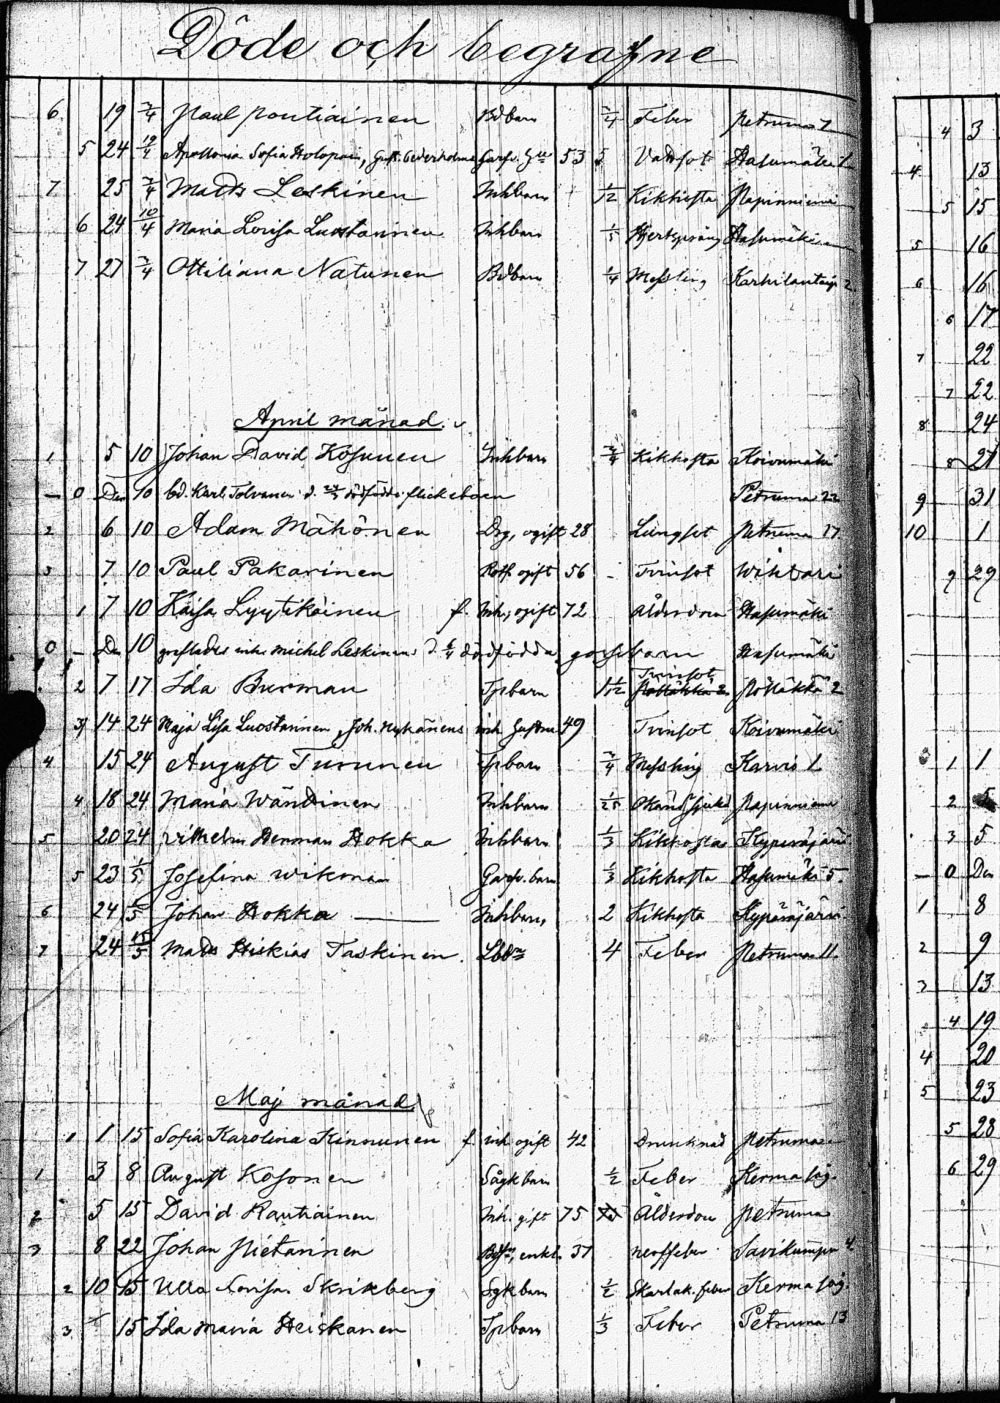 Döde och begrafne
6 19 3/4 Paul Pontiainen Bdbarn 3/4 Feber Petruma 7
5 24 19/4 Apollonia Sofia Holopain, Gust. Cederholms 53 5 Vattsot Hasumäki 1
7 25 3/4 Matts Leskinen Inhbarn 1/12 Kikhosta Papinniemi
6 24 10/4 Maria Lovisa Luostarinen Inhbarn 1/5 Hasumäki
7 27 3/4 Ottiliana Natunen Bdbarn 1/4 Messling Karhilantaip 2
April månad.
1 5 10 Johan David Kosunen Inhbarn 3/4 Kikhosta Koivumäki
0 Den 10 bd. Karl Tolvanen d. dödfödde flickebarn Petruma 22
2 6 10 Adam Mähönen Drg, ogift 28 Lungsot Petruma 17
3 7 10 Paul Pakarinen Rotf. ogift 56 - Tvinsot Wihtari
1 7 10 Kaisa Lyytikäinen f. Inh, ogift 72 Ålderdom Hasumäki
0 Den 10 graflades inhs Michel Leskinens d. 1/4 dödfödda gossebarn Hasumäki
2 7 17 Ida Burman Tpbarn 1 1/12 Tvinsot Pölläkkä 2
3 14 24 Maja Lisa Luostarinen, Joh. Nykänens inh. hustru 49 Tvinsot Koivumäki
4 15 24 August Turunen Tpbarn 3/4 Messling Karvio 1
4 18 24 Maria Wänttinen Inhbarn 1/25 Okänd sjukd Papinniemi
5 20 24 Vilhelm Herman Hokka Inhbarn 1/3 Kikhosta Kypäräjärvi
5 23 1/5 Josefina Wikman Garfv. barn 1/3 Kikhosta Hasumäki 5.
6 24 Johan Hokka Inhbarn, 2 Kikhosta Kypäräjärvi
7 24 15/5 Matts Hiskias Taskinen. 4 Feber Petruma 11.
Maj månad
1 1 15 Sofia Karolina Kinnunen f inh ogift 42 Drunknad Petruma
1 3 8 August Kosonen Sågkbarn 1/2 Feber Kerma såg.
2 5 15 David Rautiainen Inh. gift 75 Ålderdom Petruma
3 8 22 Johan Pietarinen Bdsn, enkl. 37 nerffeber Savikumpu 4
2 10 15 Ulla Lovisa Skrikberg Sgkbarn 1/2 Skarlak. feber Kerma såg.
3 15 Ida Maria Heiskanen Tpbarn 1/3 Feber Petruma 13
4 3
4 13
5 15
5 16
6 16
6 17
7 22
7 22
8 24
8 27
9 31
10 1
9 29
1 1
2 5
3 5
0 Den
1 8
2 9
3 13
4 19
4 20
5 23
5 28
6 29